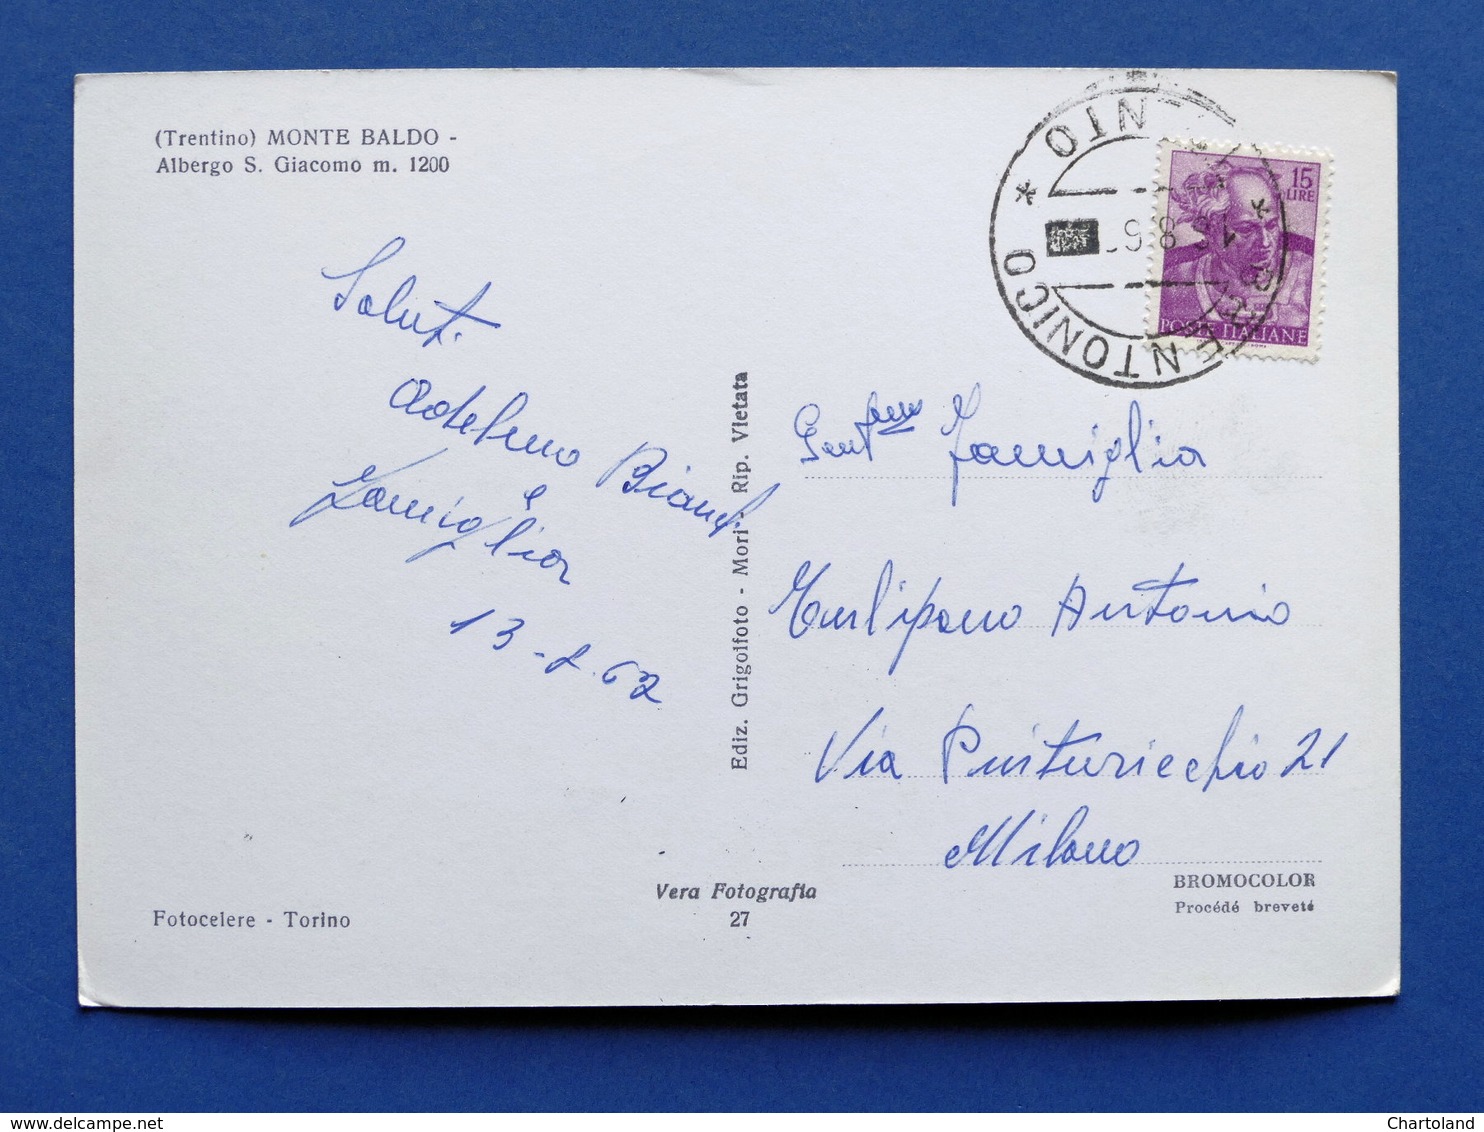 (Trentino) MONTE BALDO -
Albergo S. Giacomo m. 1200
Saluti
Adelmo Bianchi
e
Famiglia
13-8-62
Ediz. Grigolfoto - Mori - Rip. Vietata
BRENTONICO * NTO *
15
LIRE
POSTE ITALIANE
Gent.ma Famiglia
Antonio
Via Pinturicchio 21
Milano
Vera Fotografia
27
Fotocelere - Torino
BROMOCOLOR
Procédé breveté
Chartoland